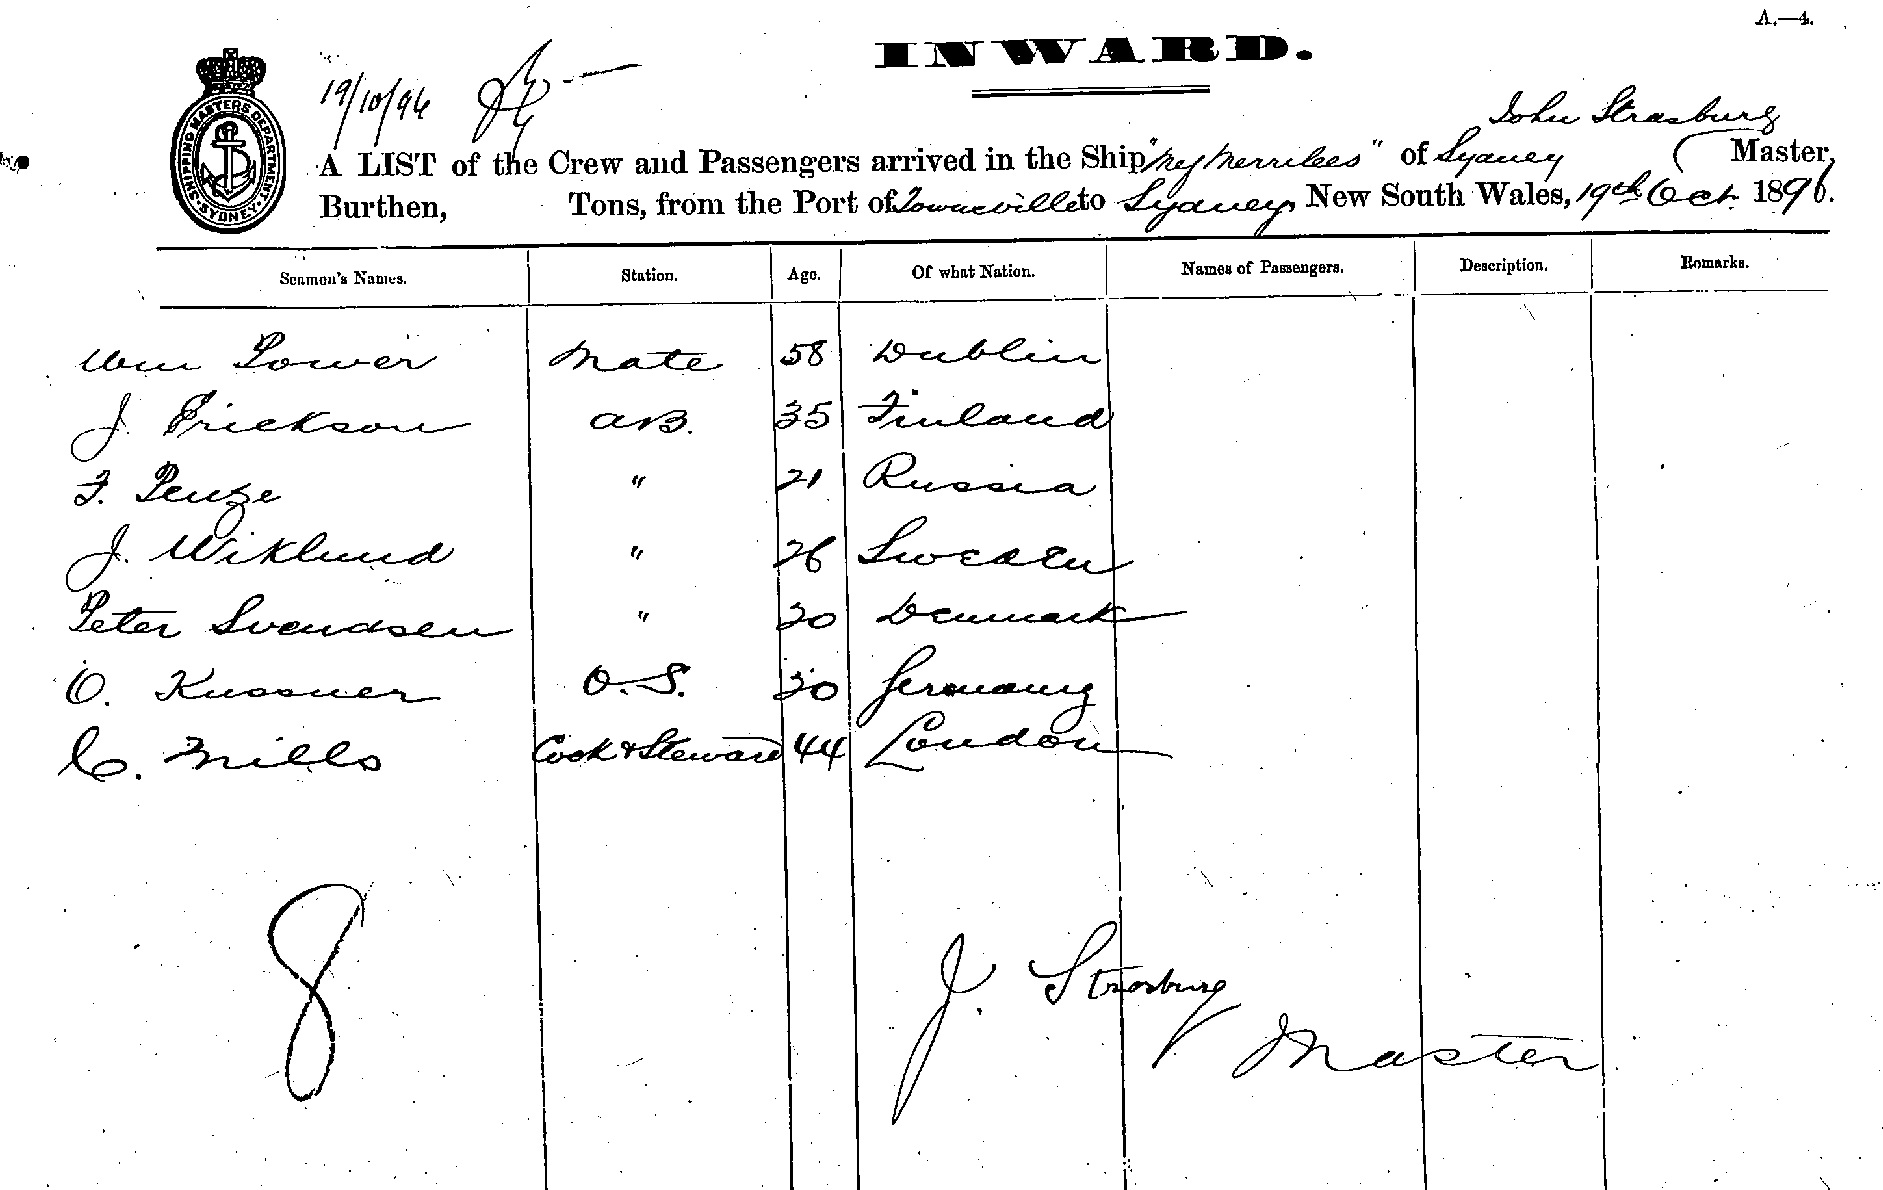 A.—4.
INWARD.
19/10/96
SHIPPING MASTERS DEPARTMENT SYDNEY
John Strasburg
A LIST of the Crew and Passengers arrived in the Ship "Merrilees" of Sydney Master,
Burthen, Tons, from the Port of Townsville to Sydney, New South Wales, 19th Oct. 1896.
Seamen's Names. Station. Age. Of what Nation. Names of Passengers. Description. Remarks.
Wm Power Mate 58 Dublin
J. Erickson AB. 35 Finland
F. Penze " 21 Russia
J. Wiklund " 26 Sweden
Peter Svendsen " 20 Denmark
O. Kussner O.S. 20 Germany
C. Mills Cook & Steward 44 London
8
J. Strasburg
Master